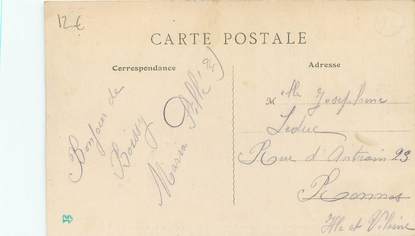 12€
CARTE POSTALE
Correspondance
Adresse
Bonjour de
Boissy
Maria
M lle Josephine
Leduc
Rue d'Antrain 23
Rennes
Ille et Vilaine